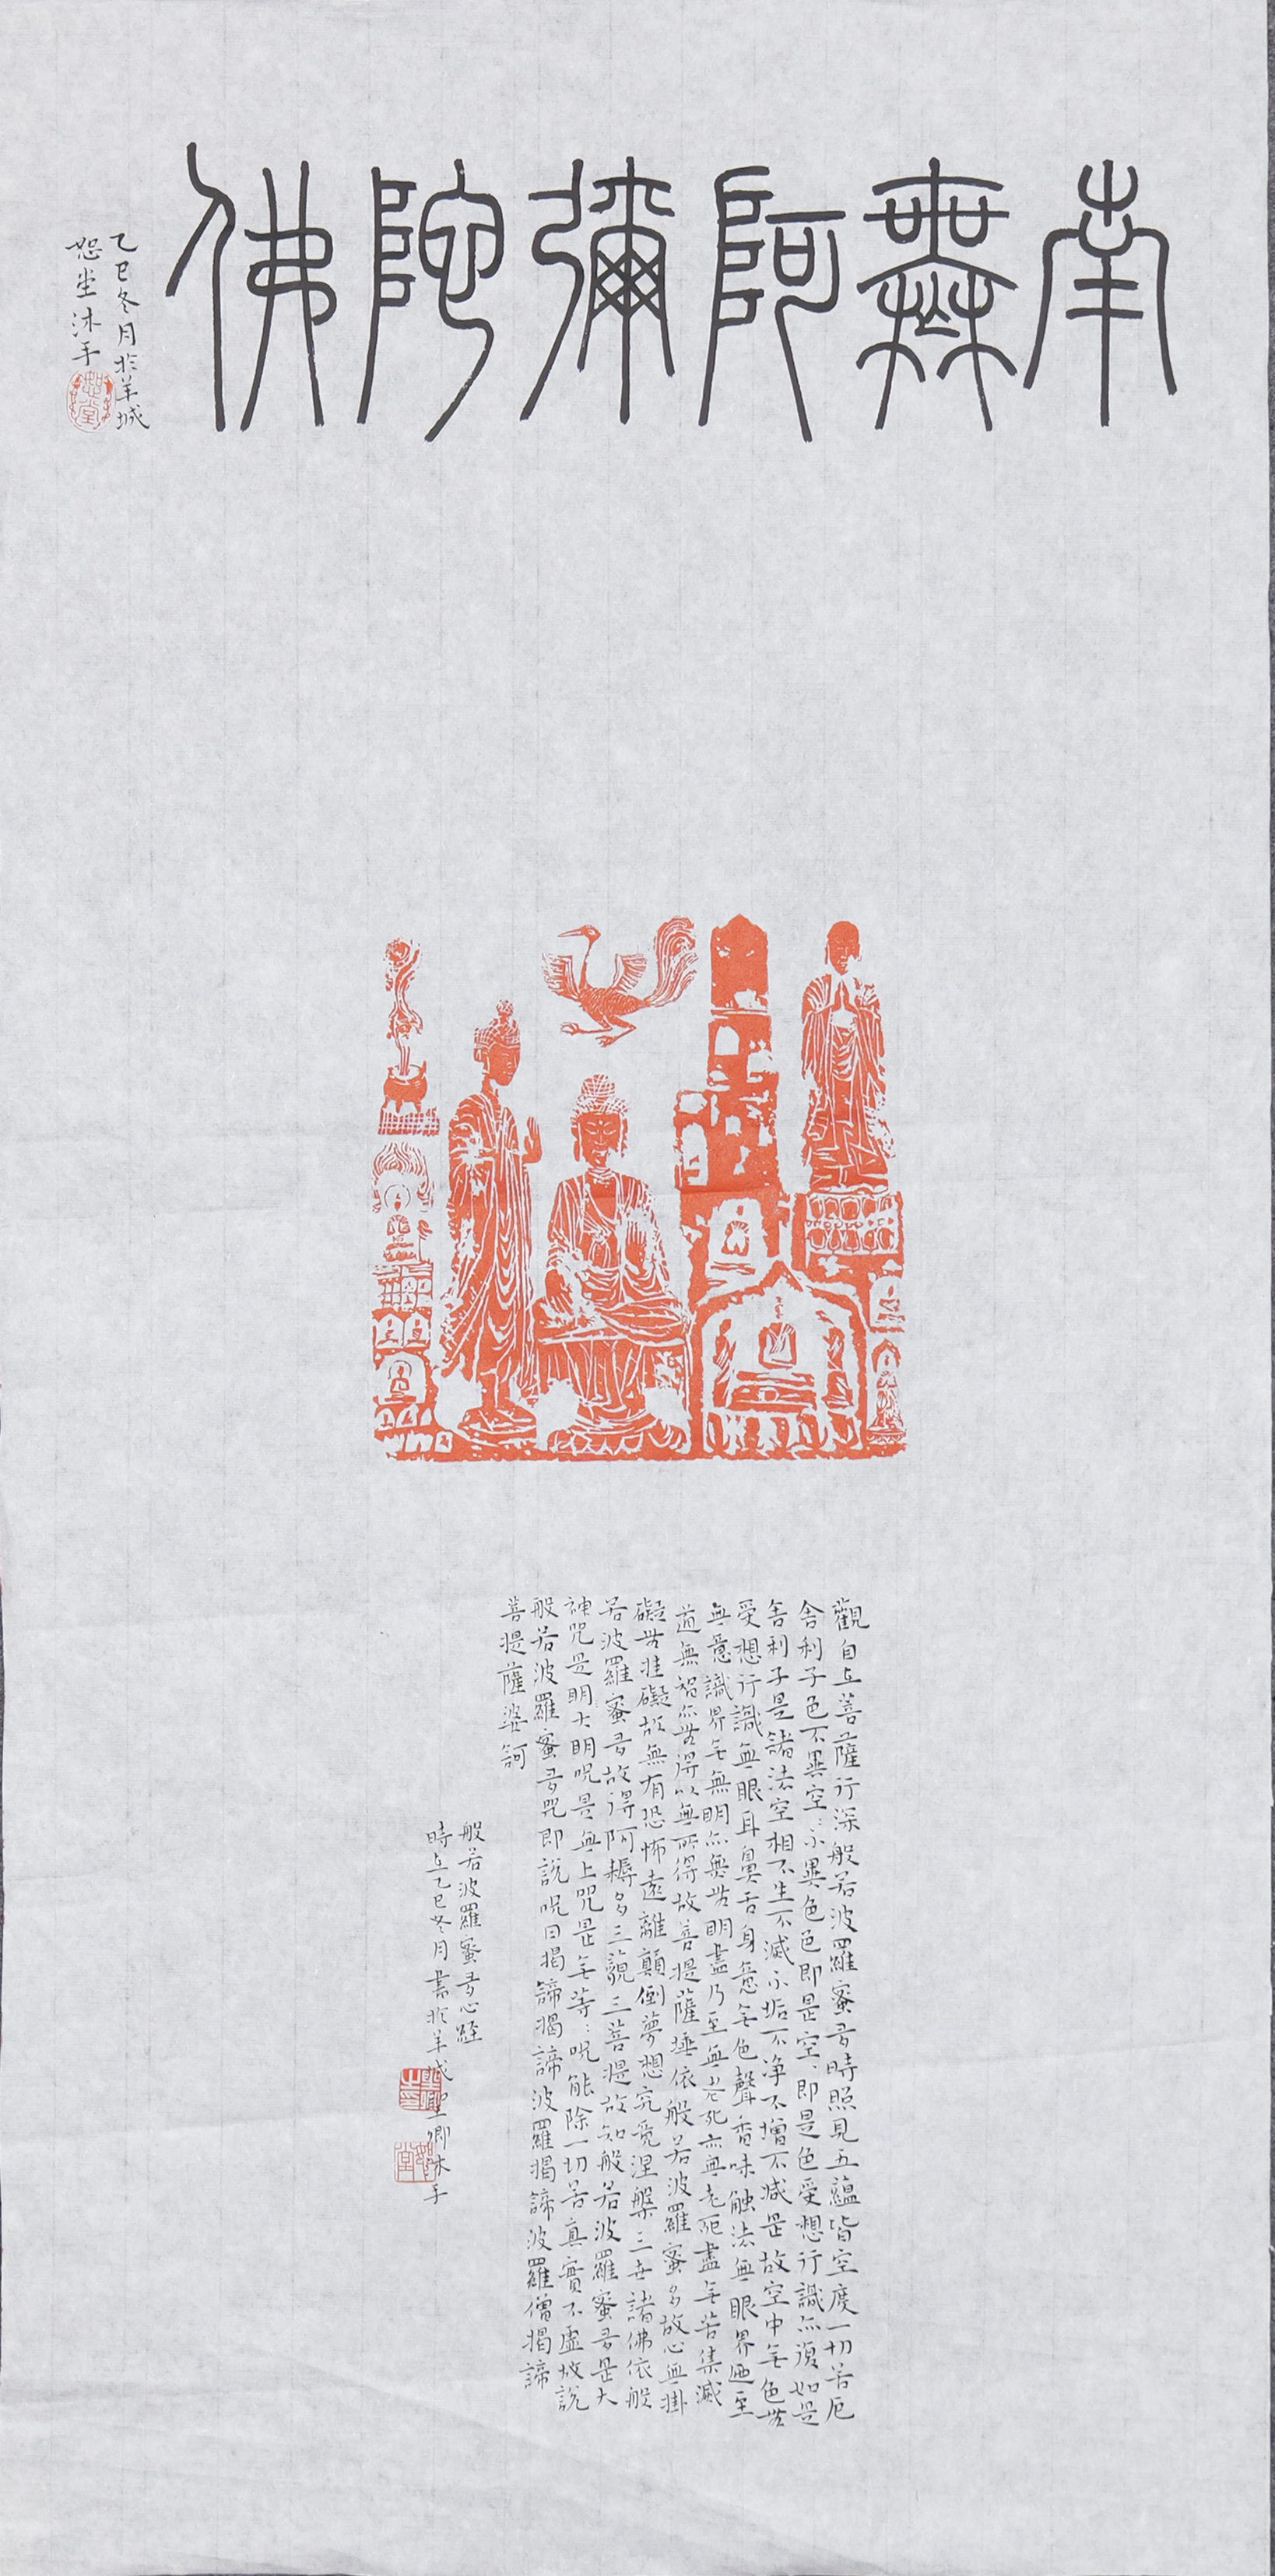 南無阿彌陀佛
乙巳冬月於羊城
恕堂沐手
觀自在菩薩行深般若波羅蜜多時照見五蘊皆空度一切苦厄
舍利子色不異空〻不異色色即是空〻即是色受想行識亦復如是
舍利子是諸法空相不生不滅不垢不净不增不减是故空中無色無
受想行識無眼耳鼻舌身意無色聲香味触法無眼界迺至
無意識界無無明亦無無明盡乃至無老死亦無老死盡無苦集滅
道無智亦無得以無所得故菩提薩埵依般若波羅蜜多故心無掛
礙無挂礙故無有恐怖遠離顛倒夢想究竟涅槃三世諸佛依般
若波羅蜜多故得阿耨多三藐三菩提故知般若波羅蜜多是大
神咒是明大明呪是無上咒是無等〻呪能除一切苦真實不虛故說
般若波羅蜜多咒即說呪曰揭諦揭諦波羅揭諦波羅僧揭諦
菩提薩婆訶
般若波羅蜜多心經
時在乙巳冬月書於羊城聖卿沐手